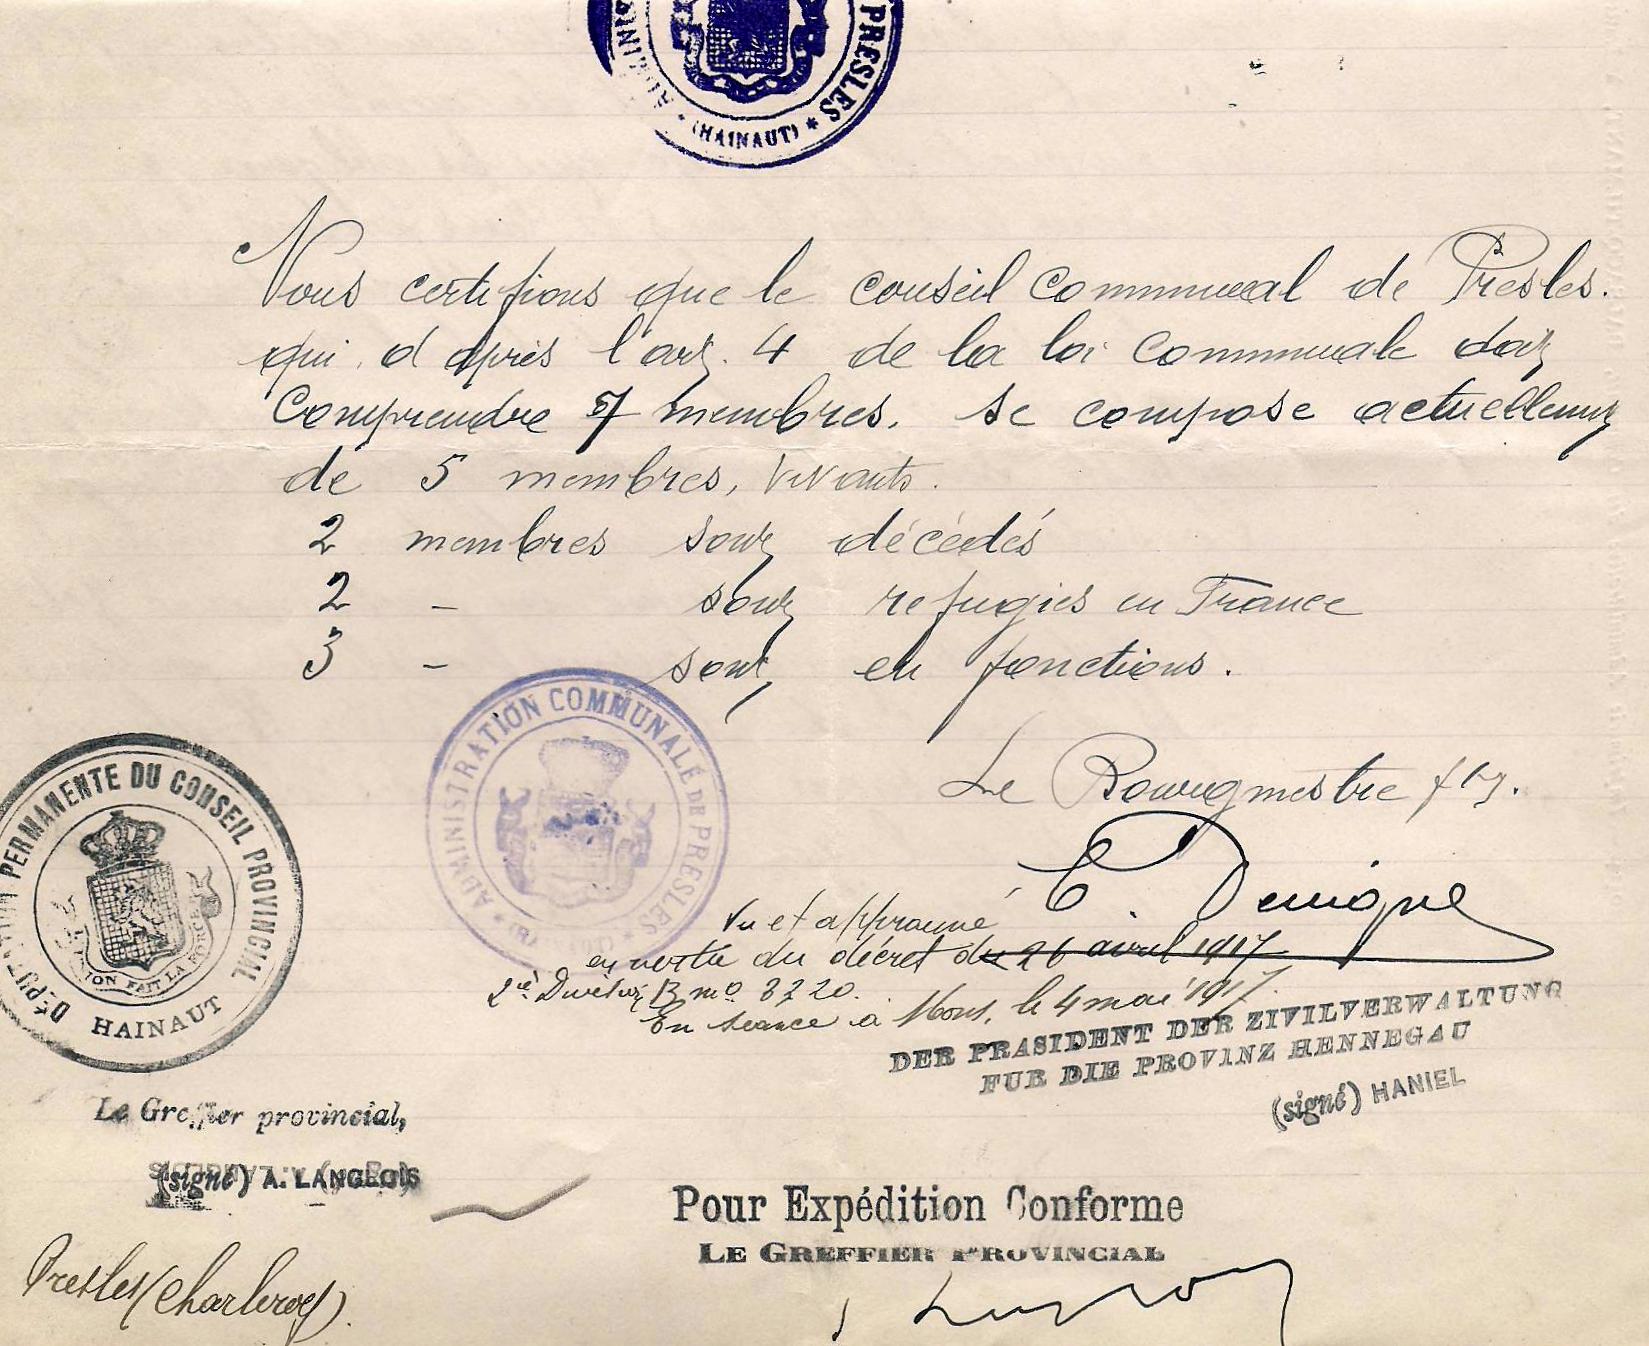 ADMINIS PRESLES
* (HAINAUT) *
Nous certifions que le conseil communal de Presles.
qui, d'après l'art. 4 de la loi communale doit
comprendre 7 membres, se compose actuellement
de 5 membres, vivants.
2 membres sont décédés
2 - sont refugiés en France
3 - sont en fonctions.
ADMINISTRATION COMMUNALE DE PRESLES
DÉPUTATION PERMANENTE DU CONSEIL PROVINCIAL
L'UNION FAIT LA FORCE
HAINAUT
Le Bourgmestre
Vu et approuvé
en vertu du décret du 26 avril 1917
2e Division B no 3220.
En séance à Mons, le 4 mai 1917.
DER PRASIDENT DER ZIVILVERWALTUNG
FUR DIE PROVINZ HENNEGAU
(signé) HANIEL
Le Greffier provincial,
(signé) A. LANGLOIS
Pour Expédition Conforme
LE GREFFIER PROVINCIAL
Presles (Charleroy).